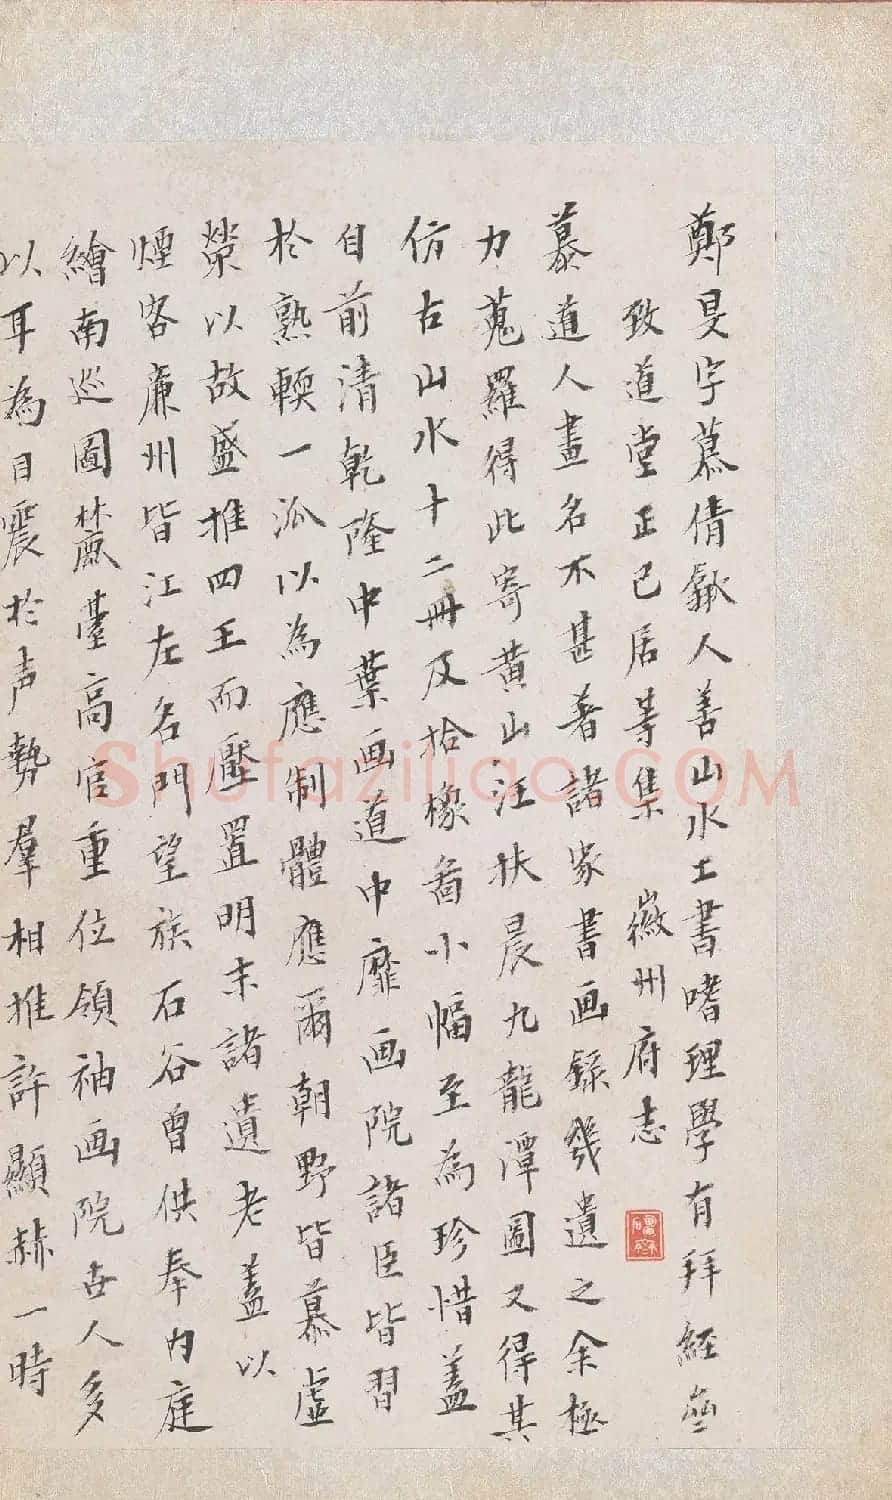 鄭旻字慕倩歙人善山水工書嗜理學有拜經齋
致道堂正已居等集 徽州府志
慕道人畫名不甚著諸家書画錄幾遺之余極
力蒐羅得此寄黃山汪扶晨九龍潭圖又得其
仿古山水十二冊及拾橡圖小幅至為珍惜蓋
自前清乾隆中葉画道中靡画院諸臣皆習
於熟輭一派以為應制體應爾朝野皆慕虛
榮以故盛推四王而壓置明末諸遺老蓋以
煙客廉州皆江左名門望族石谷曾供奉內庭
繪南巡圖麓臺高官重位領袖画院世人多
以耳為目震於声勢羣相推許顯赫一時
Shufaziliao.COM